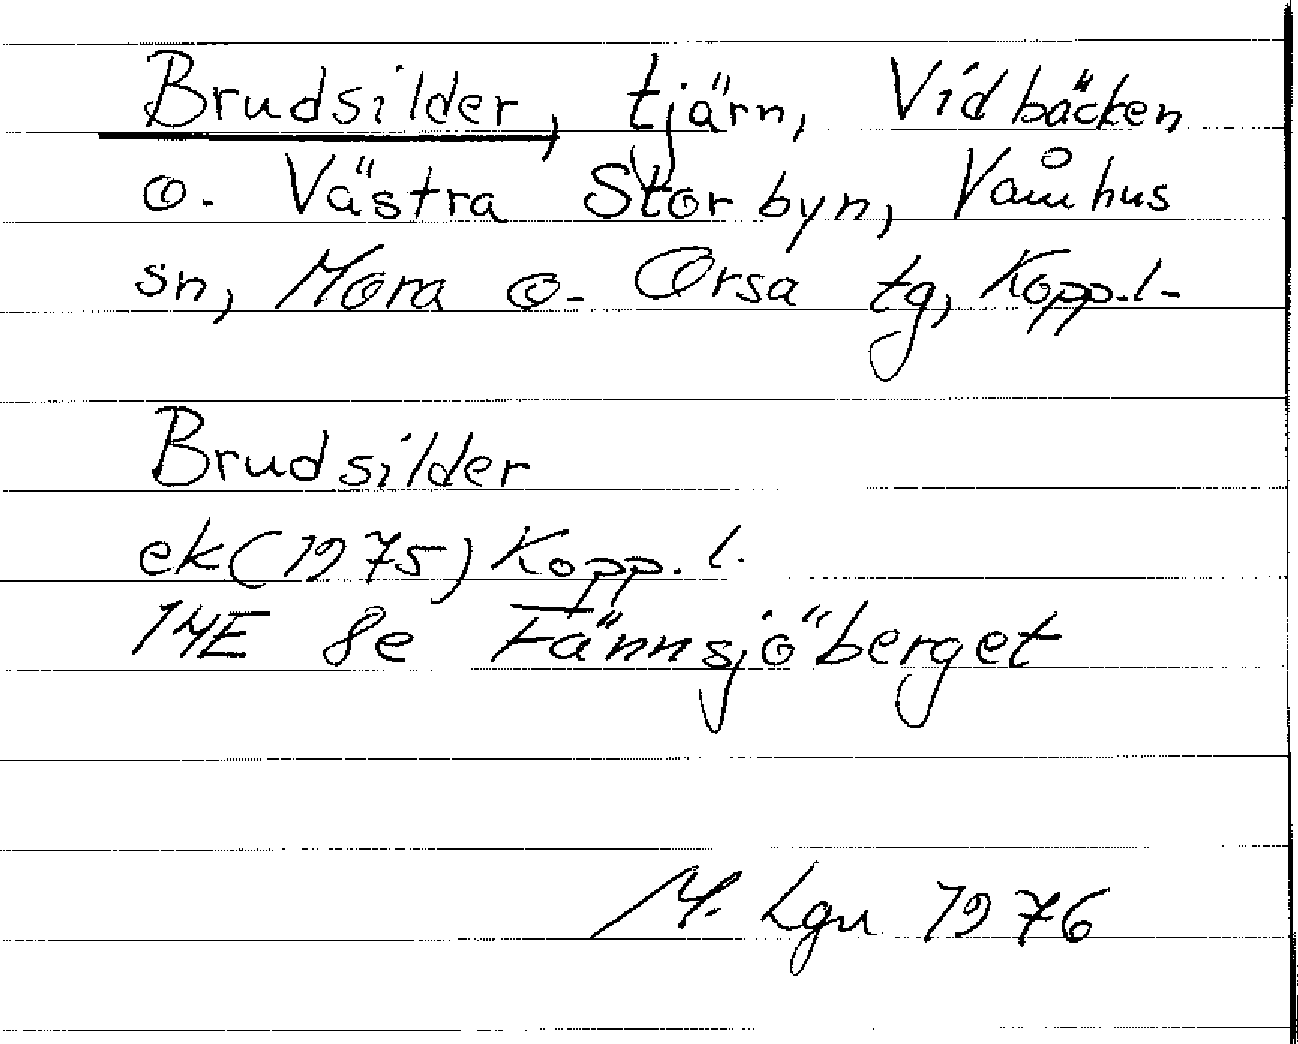 Brudsilder, tjärn, Vidbäcken
o. Västra Storbyn, Våmhus
sn, Mora o. Orsa tg, Kopp.l.
Brudsilder
ek(1975) Kopp.l.
14E 8e Fännsjöberget
M. Lgn 1976